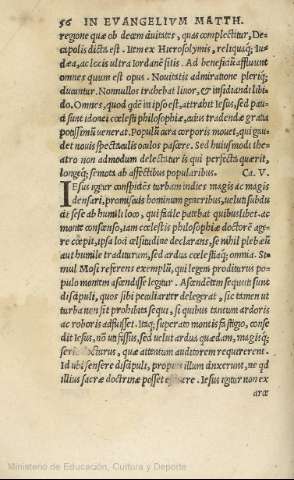 56 IN EVANGELIVM MATTH.
regione quæ ob decem ciuitates, quas complectitur, De-
capolis dicta est. Item ex Hierosolymis, reliquaq; Iu-
dæa, ac locis ultra Iordanẽ sitis. Ad beneficiũ affluunt
omnes quum est opus. Nouitatis admiratione pleriq;
ducuntur. Nonnullos trahebat liuor, & insidiandi libi-
do. Omnes, quod qdẽ in ipso est, attrahit Iesus, sed pau-
ci sunt idonei cœlesti philosophiæ, cuius tradendæ gratia
potissimũ uenerat. Populũ cura corporis mouet, qui gau-
det nouis spectaculis oculos pascere. Sed huiusmodi the-
atro non admodum delectatur is qui perfecta quærit,
longeq; semota ab affectibus popularibus. Ca. V.
IEsus igitur conspiciẽs turbam indies magis ac magis
densari, promiscuis hominum generibus, uelut subdu-
cit sese ab humili loco, qui facile patebat quibuslibet. ac
monte conscenso, iam cœlestis philosophiæ doctorẽ age-
re cœpit, ipsa loci celsitudine declarans, se nihil plebeũ
aut humile traditurum, sed ardua cœlestiaq; omnia. Si-
mul Mosi referens exemplũ, qui legem proditurus po-
pulo montem ascendisse legitur. Ascendẽtem sequuti sunt
discipuli, quos sibi peculiariter delegerat, sic tamen ut
turba non sit prohibita sequi, si quibus tantum ardoris
ac roboris adfuisset. Itaq; superato montis fastigio, conse
dit Iesus, nõ ut fessus, sed uelut ardua quædam, magisq;
seria docturus, quæ attentum auditorem requirerent.
Id ubi sensere discipuli, propius illum cinxerunt, ne qd
illius sacræ doctrinæ posset effluere. Iesus igitur non ex
arce
Ministerio de Educación, Cultura y Deporte